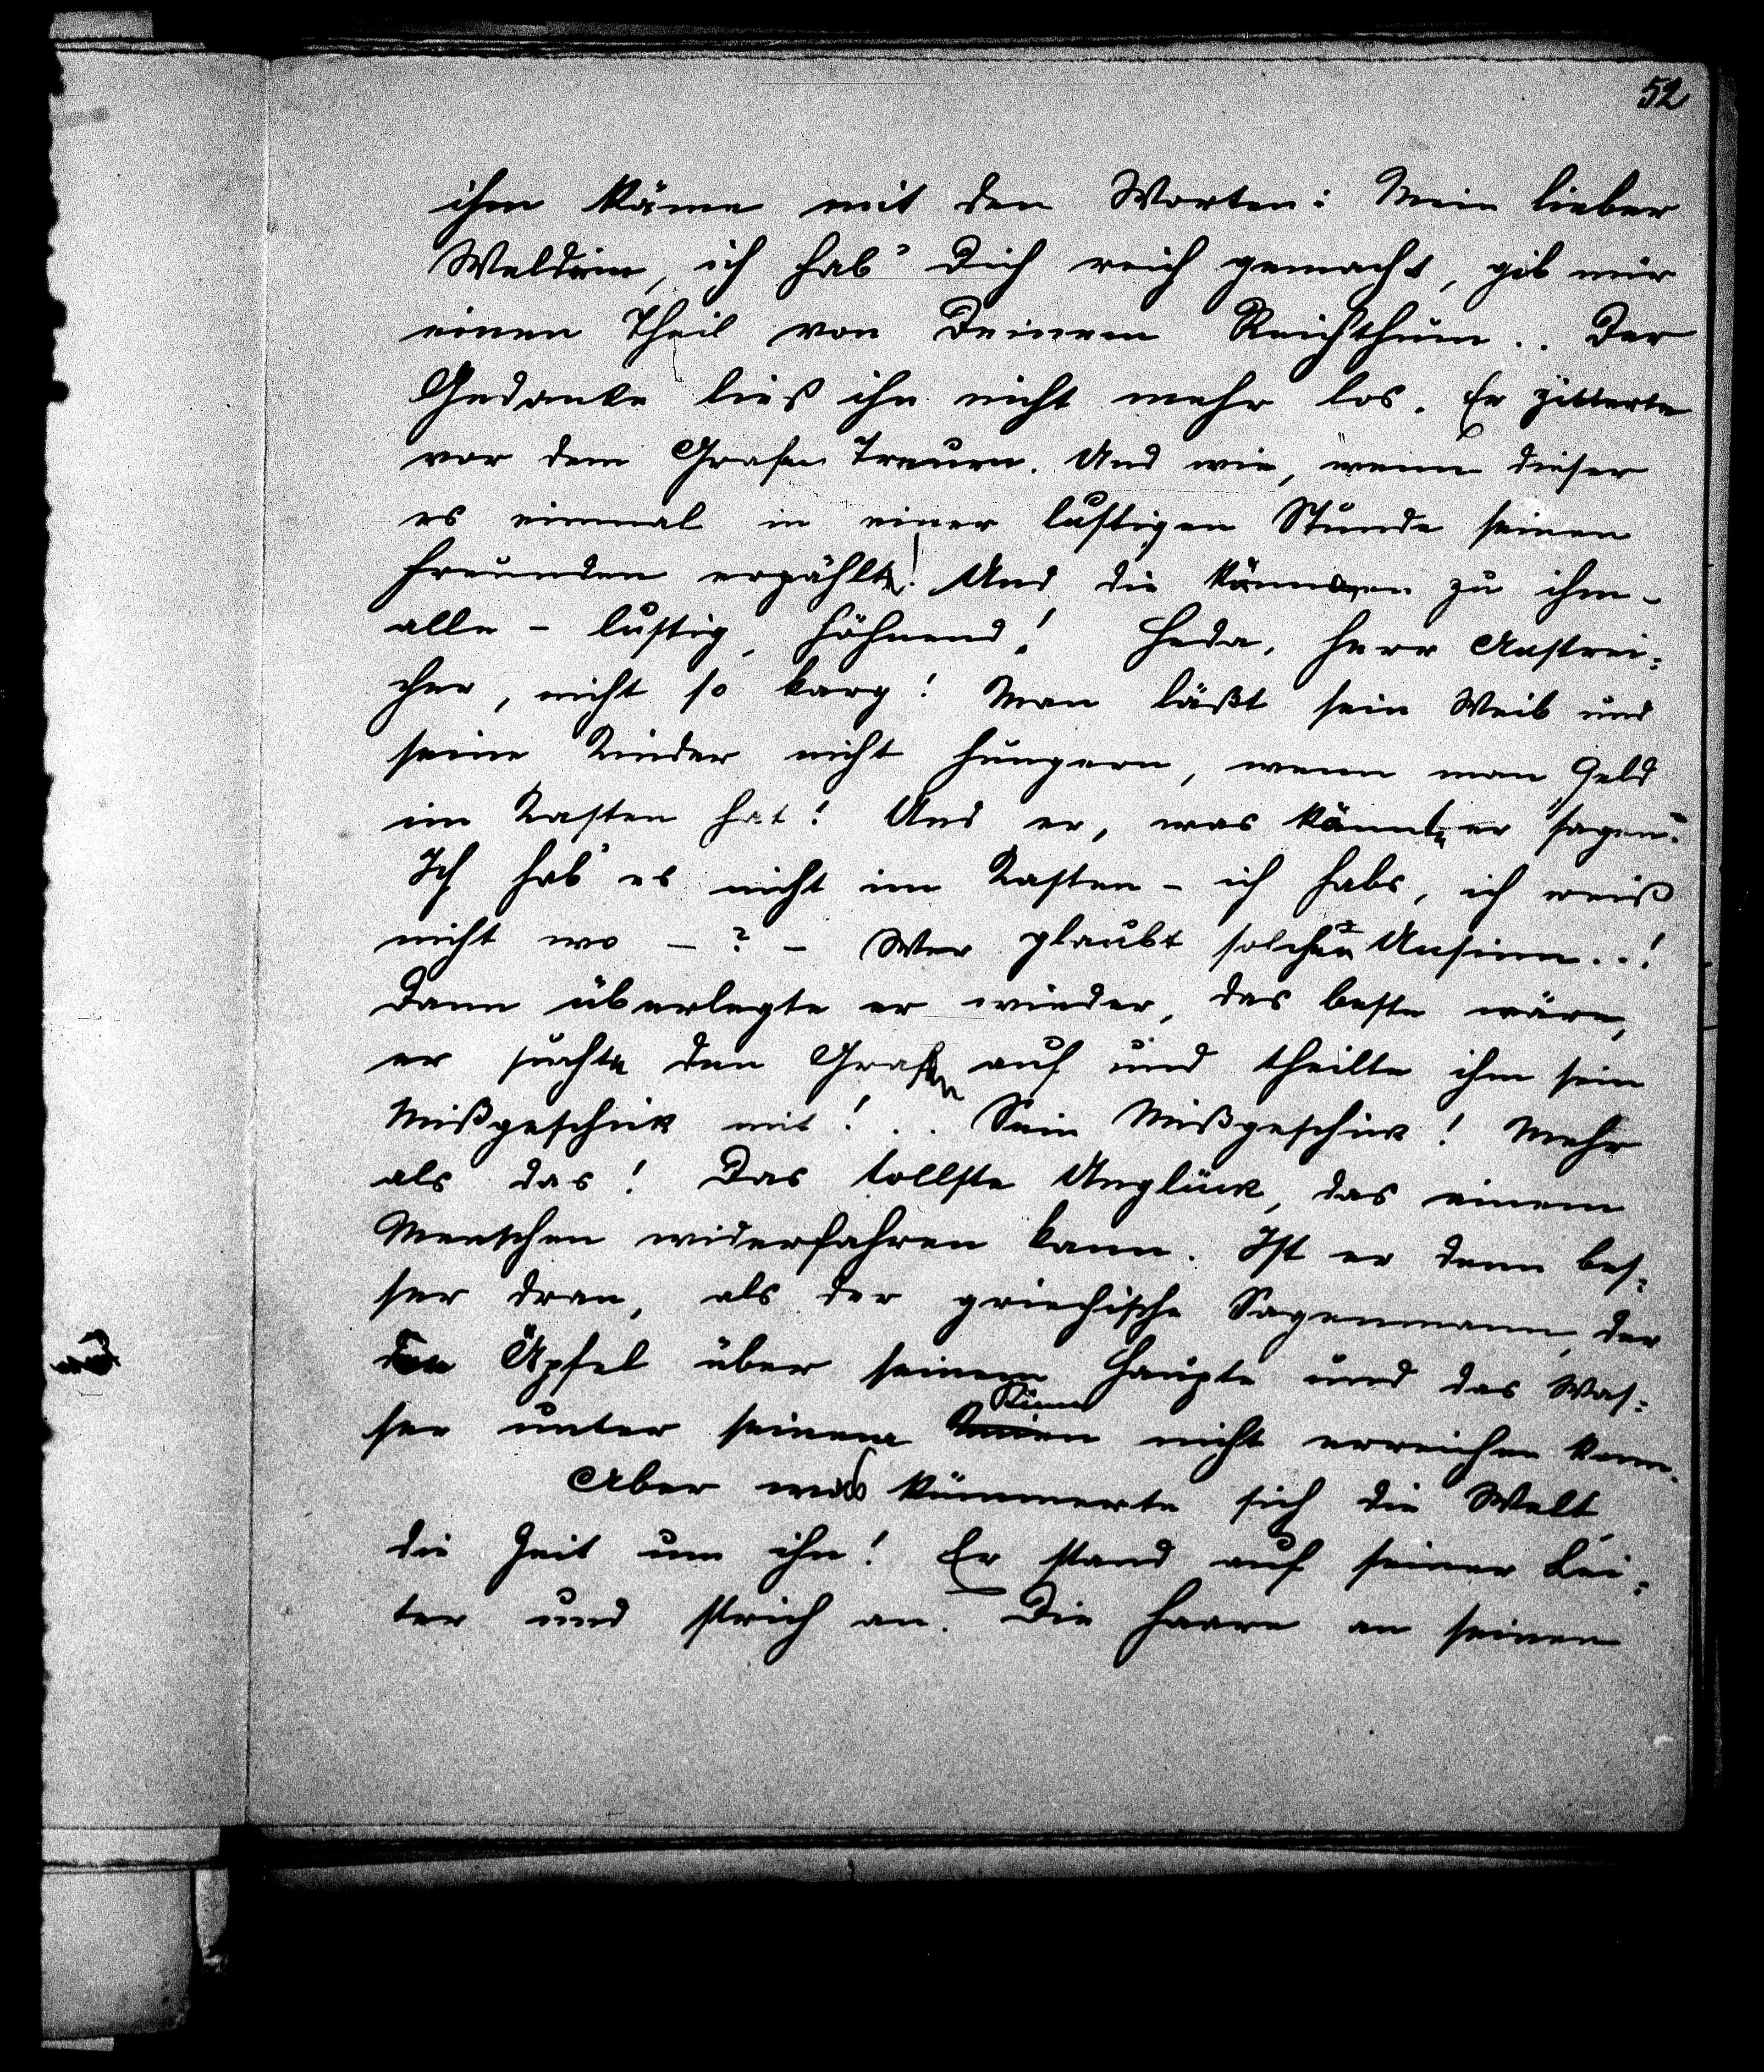 52
ihm käme mit den Worten: Mein lieber
Weldein, ich hab' Dich reich gemacht, gib mir
einen Theil von Deinem Reichthum.. Der
Gedanke ließ ihn nicht mehr los. Er zitterte
vor dem Grafen Treuen. Und wie, wenn dieser
es einmal in einer lustigen Stunde seinen
Freunden erzählte! Und die kämen zu ihm –
alle – lustig, höhnend! Heda, Herr Anstrei=
cher, nicht so karg! Man läßt sein Weib und
seine Kinder nicht hungern, wenn man Geld
im Kasten hat! Und er, was könnte er sagen?
Ich hab' es nicht im Kasten – ich habs, ich weiß
nicht wo – ? – Wer glaubt solchen Unsinn..!
Dann überlegte er wieder, das beste wäre,
er suchte den Grafen auf und theilte ihm sein
Mißgeschick mit!.. Sein Mißgeschick! Mehr
als das! Das tollste Unglück, das einem
Menschen widerfahren kann. Ist er denn bes=
ser dran, als der griechische Sagenmann, der
die Äpfel über seinem Haupte und das Was=
Kinn
ser unter seinem Knien nicht erreichen kann.
Aber was kümmerte sich die Welt,
die Zeit um ihn! Er stand auf seiner Lei=
ter und strich an. Die Haare an seinen